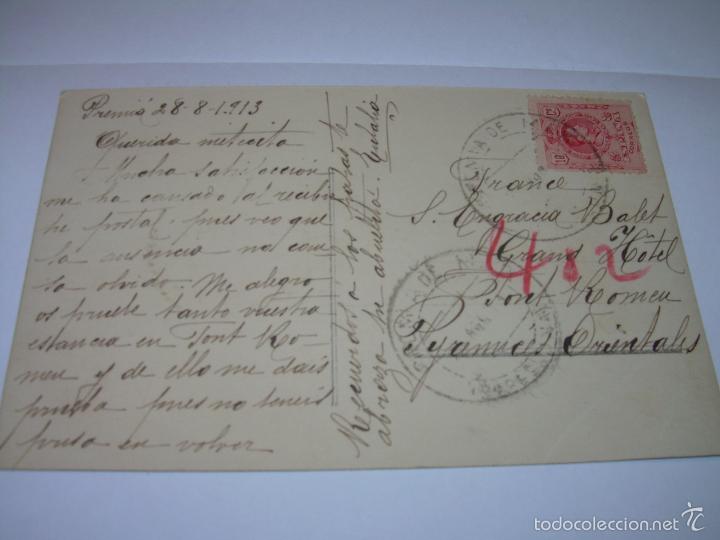 Premiá 28-8-1.913
Querida nietecita
Mucha satisfacción
me ha causado al recibir
tu postal pues veo que
la ausencia no cau-
sa olvido. Me alegro
os pruebe tanto vuestra
estancia en Font Ro-
meu y de ello me dais
prueba pues no teneis
prisa en volver
Recuerdos a los papas te
abraza tu abuelita Eulalia
France
S. Engracia Balet
Grand Hotel
Font Romeu
Pyrannées Orientales
4.02
10
todocoleccion.net